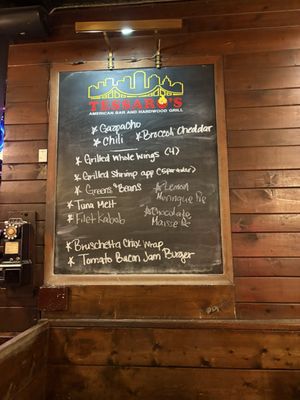 TESSARO'S
AMERICAN BAR AND HARDWOOD GRILL
* Gazpacho
* Chili * Brocok Cheddar
* Grilled Whole Wings (4)
* Grilled Shrimp app (5 per order)
* Greens & Beans
* Lemon Meringue Pie
* Tuna Melt
* Filet Kabob
* Chocolate Mousse Pie
* Bruschetta Chix Wrap
* Tomato Bacon Jam Burger